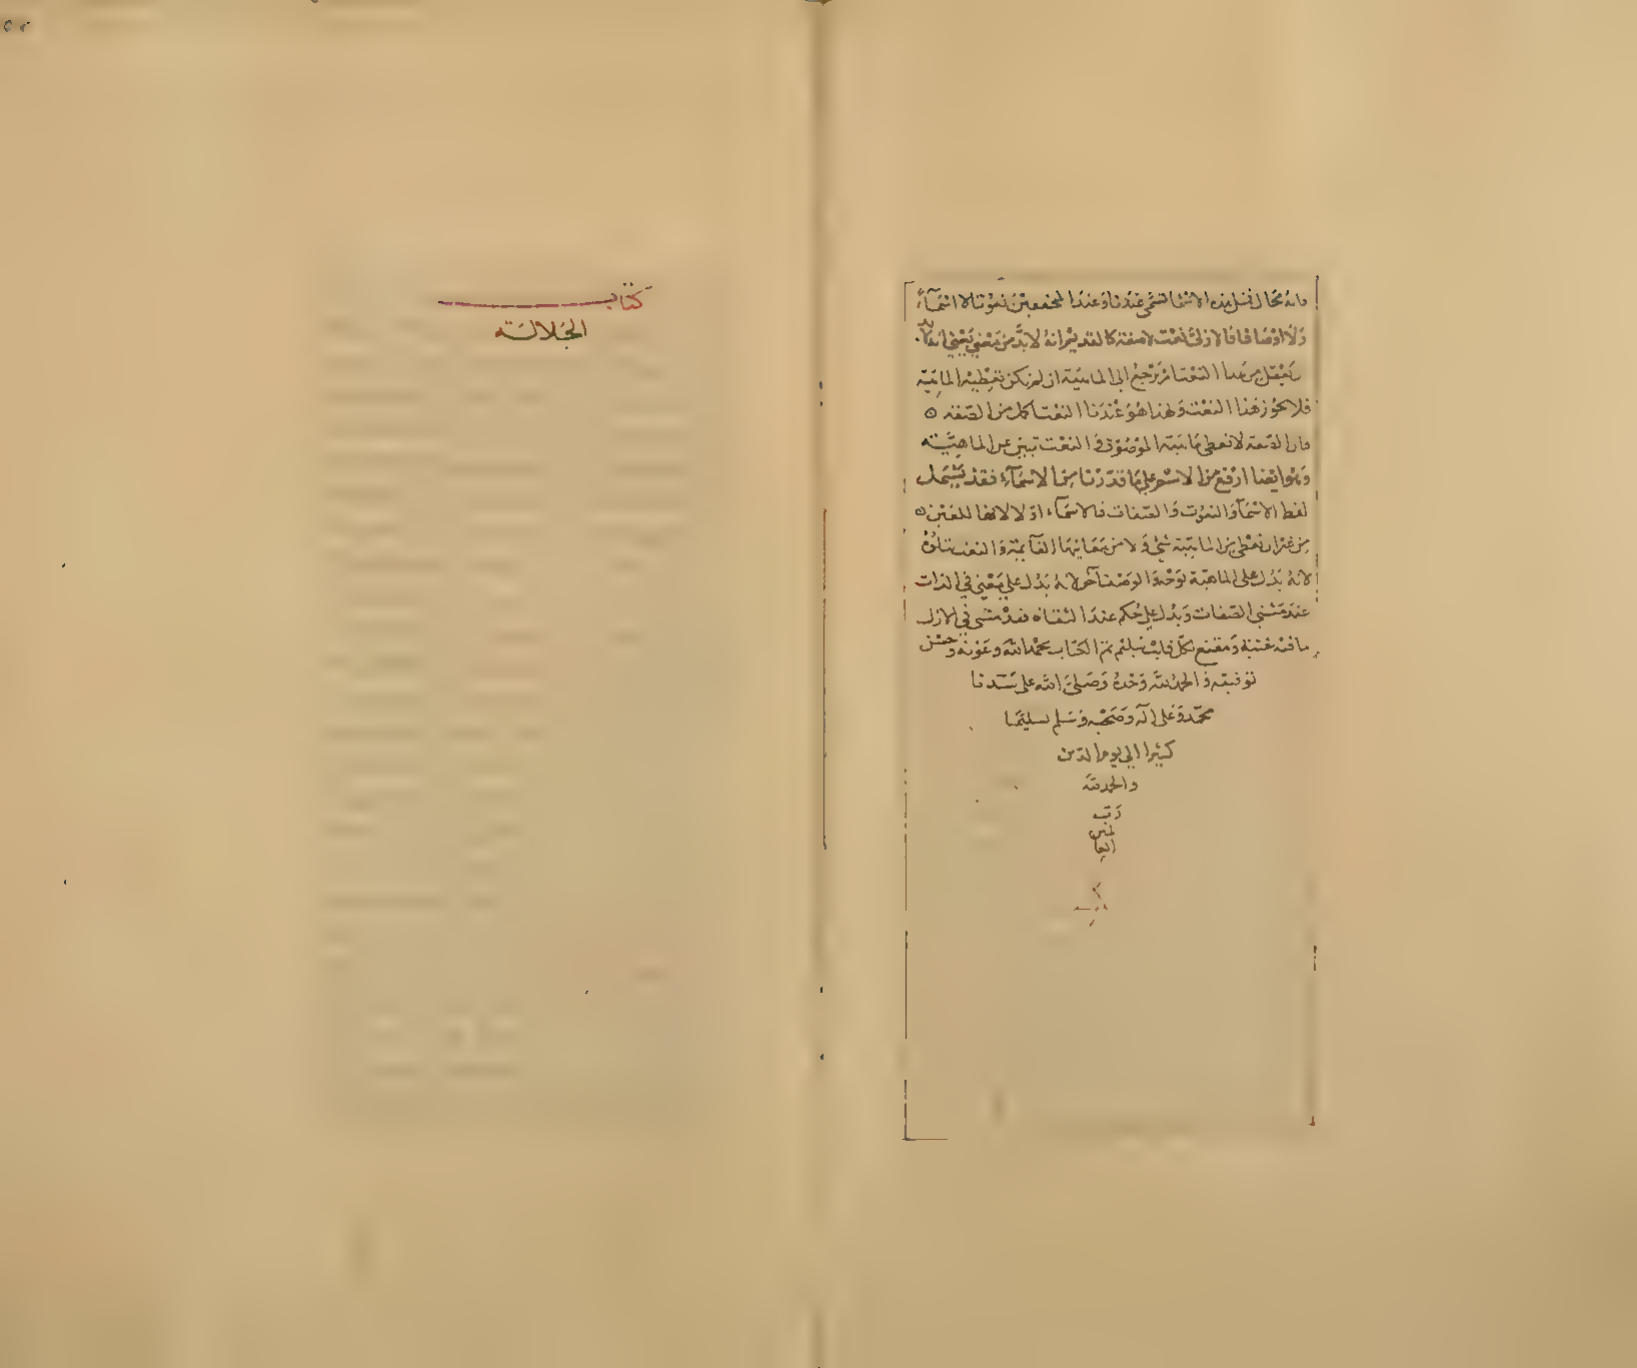 فانه محال فمثل هذه الاسما تسمى عندنا وعند المحققين نعوتا لا اسماء
ولا اوصافا فالازلى نعت لا صفة كالقديم انه لا بد من معنى يعنى انه لا بد
يعقل من هذا النعت امر يرجع الى الماهية ان لم يكن تعطيه الماهية
فلا يجوز هذا النعت ولهذا هو عندنا النعت اكمل من الصفة ه
فان الصفة لا تعطى ماهية الموصوف والنعت يبين عن الماهية
وهو ايضا ارفع من الاسم على ما قدرنا من الاسماء فقد يشمل
لفظ الاسماء والنعوت والصفات فالاسماء اولا لانها للعين ه
من غير ان تعطى من الماهية شى ولا من معانيها القايمة والنعت يتلوه
لانه يدل على الماهية بوجه والوصف آخر لانه يدل على معنى فى الذات
عند مثبتى الصفات ويدل على حكم عند النفاة فقد مشى فى الازل
ما فيه غنية ومقنع لكل قلب سليم تم الكتاب بحمد الله وعونه وحسن
توفيقه والحمد لله وحده وصلى الله على سيدنا
محمد وعلى آله وصحبه وسلم تسليما
كثيرا الى يوم الدين
والحمد لله
رب
العالمين
كتاب
الجلالة